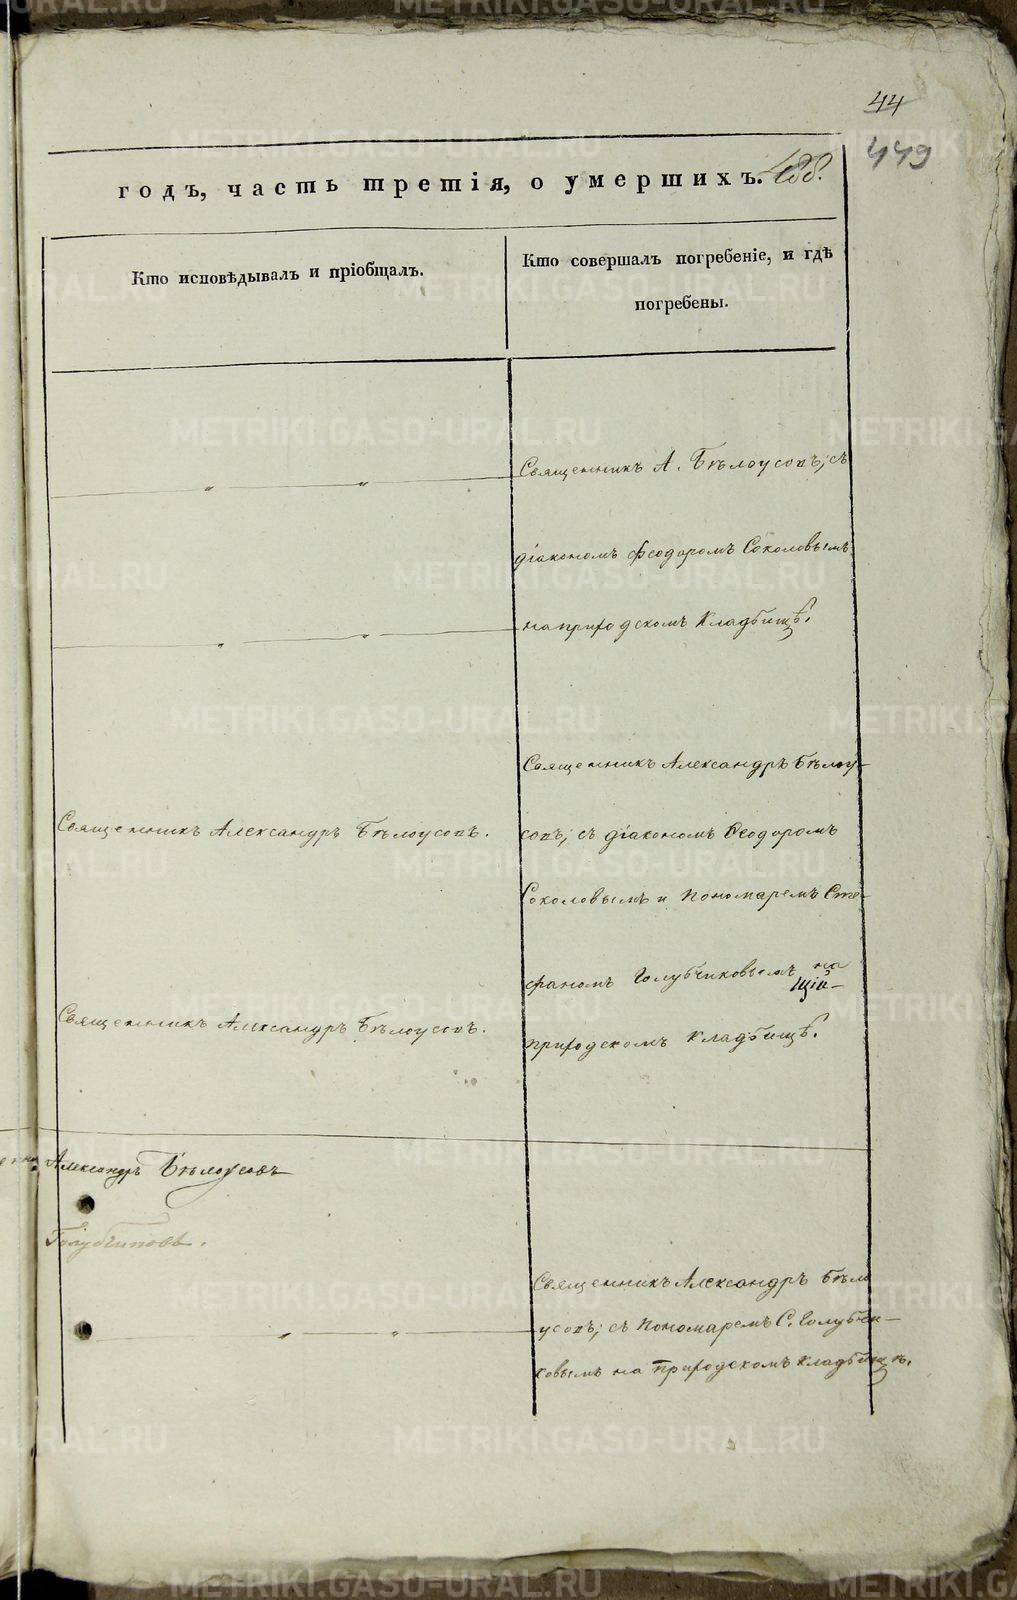 44
449
188.
годъ, часть третія, о умершихъ.
Кто исповѣдывалъ и пріобщалъ.
Кто совершалъ погребеніе, и гдѣ
погребены.
Священникъ А. Бѣлоусовъ, съ
діакономъ Феодоромъ Соколовымъ
на кладбищѣ.
Священникъ Александръ Бѣлоу-
совъ, съ діакономъ Ѳеодоромъ
Соколовымъ и пономаремъ Сте-
фаномъ Голубчиковымъ на
кладбищѣ.
Священникъ Александръ Бѣлоусовъ.
Священникъ Александръ Бѣлоусовъ.
Александръ Бѣлоусовъ
Голубчиковъ.
Священникъ Александръ Бѣло
усовъ, съ пономаремъ С. Голубчи-
ковымъ на кладбищѣ.
METRIKI.GASO-URAL.RU